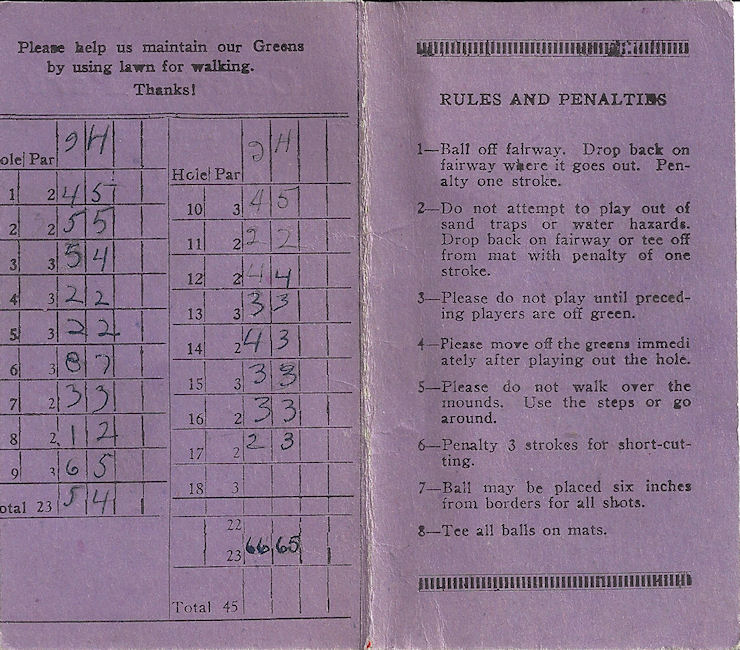 Please help us maintain our Greens
by using lawn for walking.
Thanks!
ole Par H
1 2 4 5
2 2 5 5
3 3 5 4
4 3 2 2
5 3 2 2
6 3 8 7
7 2 3 3
8 2 1 2
9 3 6 5
otal 23 5 4
Hole Par H
10 3 4 5
11 2 2 2
12 2 4 4
13 3 3 3
14 2 4 3
15 3 3 3
16 2 3 3
17 2 2 3
18 3
22
23 66 65
Total 45
RULES AND PENALTIES
1—Ball off fairway. Drop back on
fairway where it goes out. Pen-
alty one stroke.
2—Do not attempt to play out of
sand traps or water hazards.
Drop back on fairway or tee off
from mat with penalty of one
stroke.
3—Please do not play until preced-
ing players are off green.
4—Please move off the greens immedi
ately after playing out the hole.
5—Please do not walk over the
mounds. Use the steps or go
around.
6—Penalty 3 strokes for short-cut-
ting.
7—Ball may be placed six inches
from borders for all shots.
8—Tee all balls on mats.